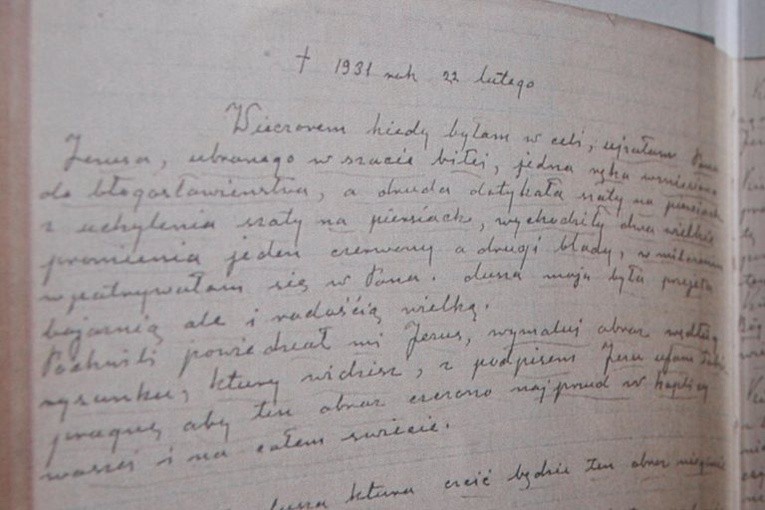 † 1931 rok 22 lutego
Wieczorem kiedy byłam w celi, ujrałam Pana
Jezusa, ubranego w szacie biłei, jedna ręka wzniesiona
do błogosławieństwa, a druda dotykała szaty na piersiach
z uchylenia szaty na piersiach, wychodziły dwa wielkie
promienia jeden czerwony a drugi blady, w milczeniu
wpatrywałam się w Pana. dusza moja była przejęta
bojaźnią ale i radością wielką.
Po chwili powiedział mi Jezus, wymaluj obraz według
rysunku, ktury widzisz, z podpisem Jezu ufam Tobie
pragnę aby ten obraz czczono najprud w kaplicy
waszei i na całem świecie.
dusza ktura czcić będzie ten obraz nie